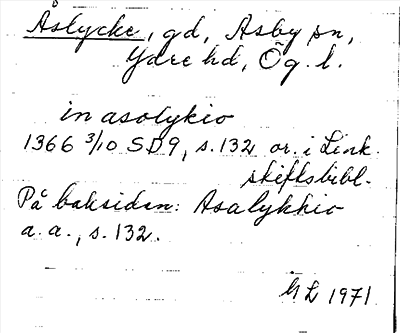 Åslycke, gd, Asby sn,
Ydre hd, Ög. l.
in asolykio
1366 3/10 SD9, s. 132 or. i Link.
skiftsbibl.
På baksidan: Asalykkio
a. a., s. 132.
G L 1971